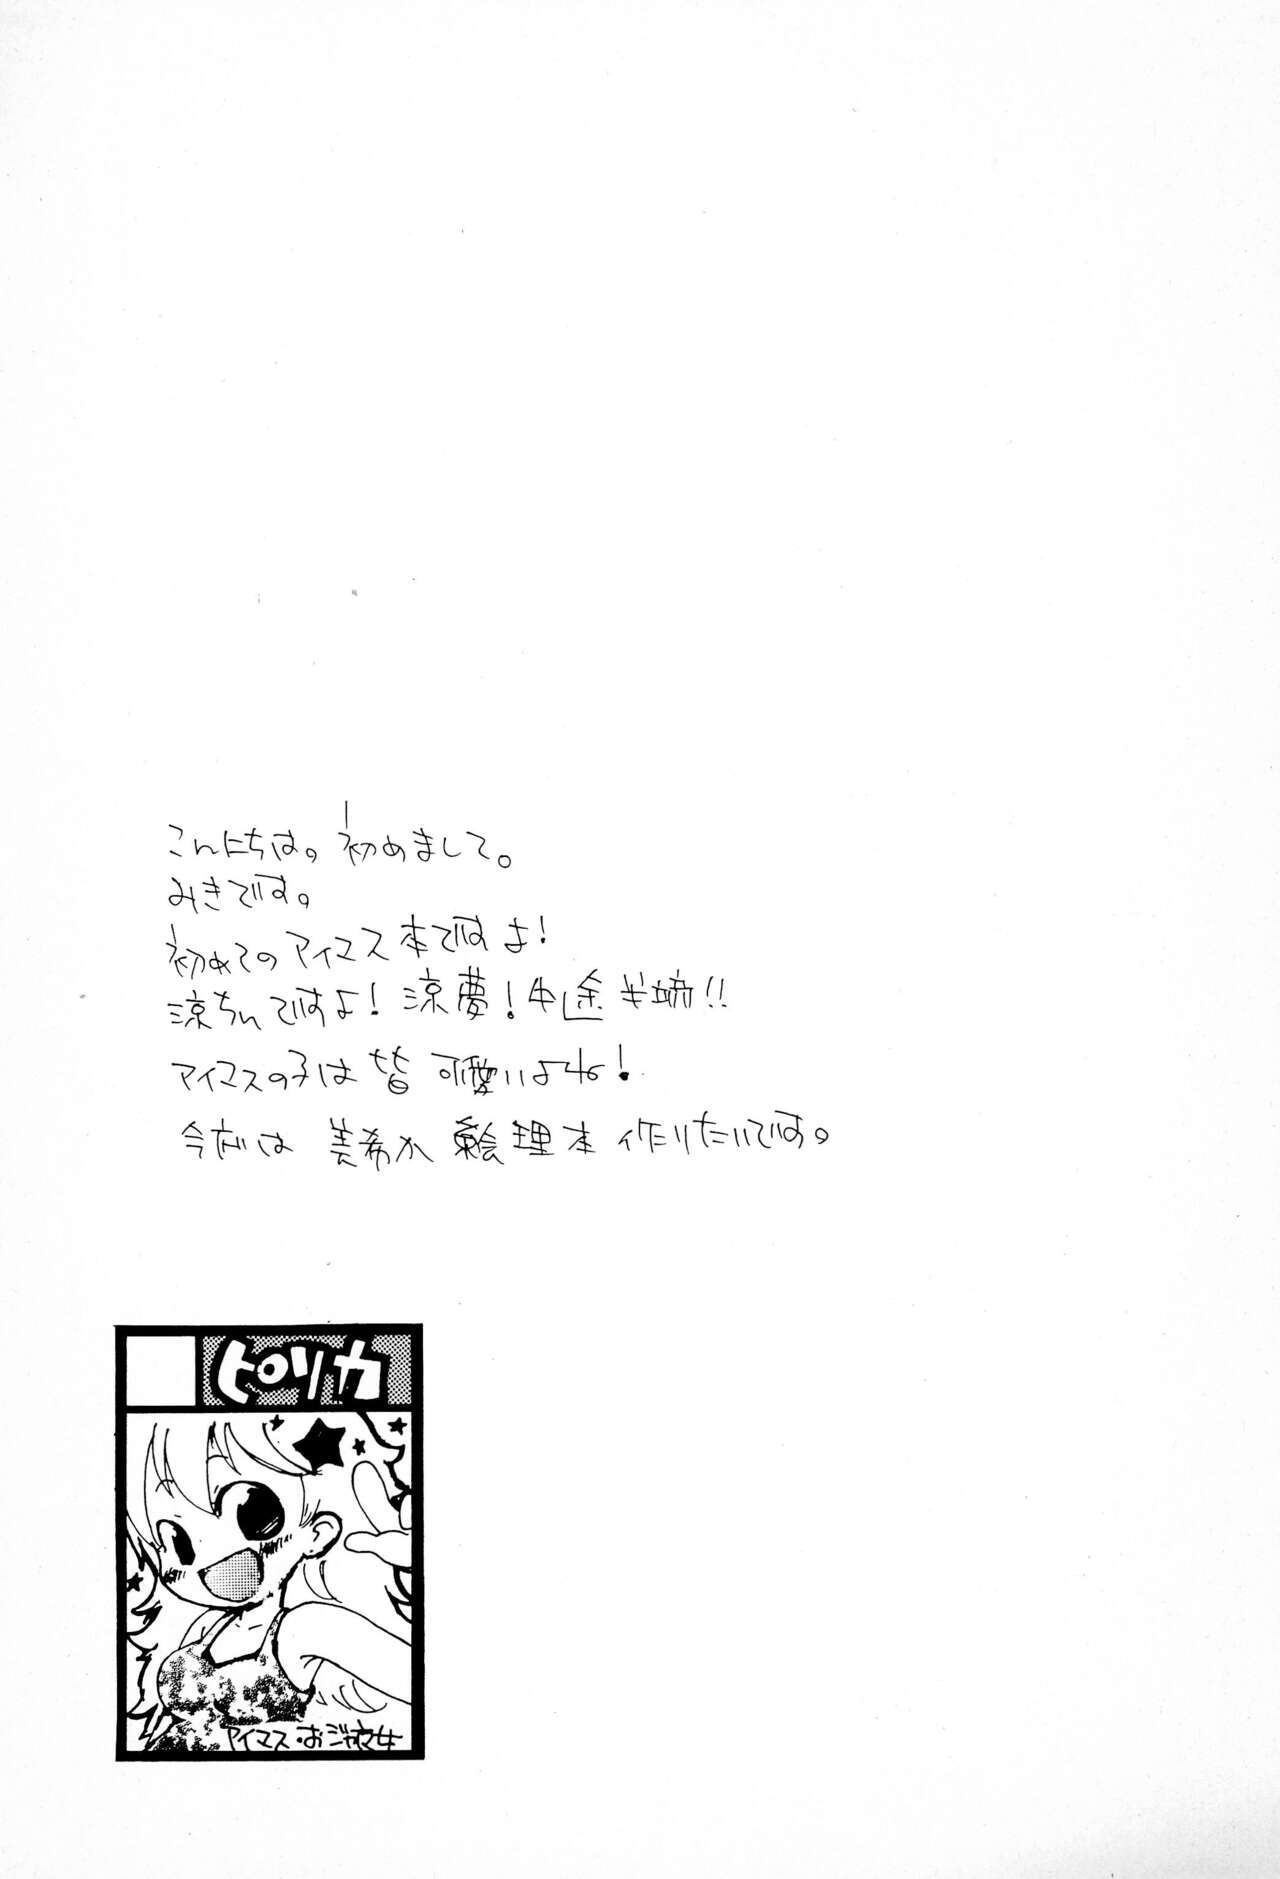 こんにちは。初めまして。
みきです。
初めてのアイマス本ですよ!
涼ちんですよ!涼夢!中途半端!!
アイマスの子は皆可愛いよね!
今度は美希か絵理本作りたいです。
ピリカ
アイマス・おジャ魔女